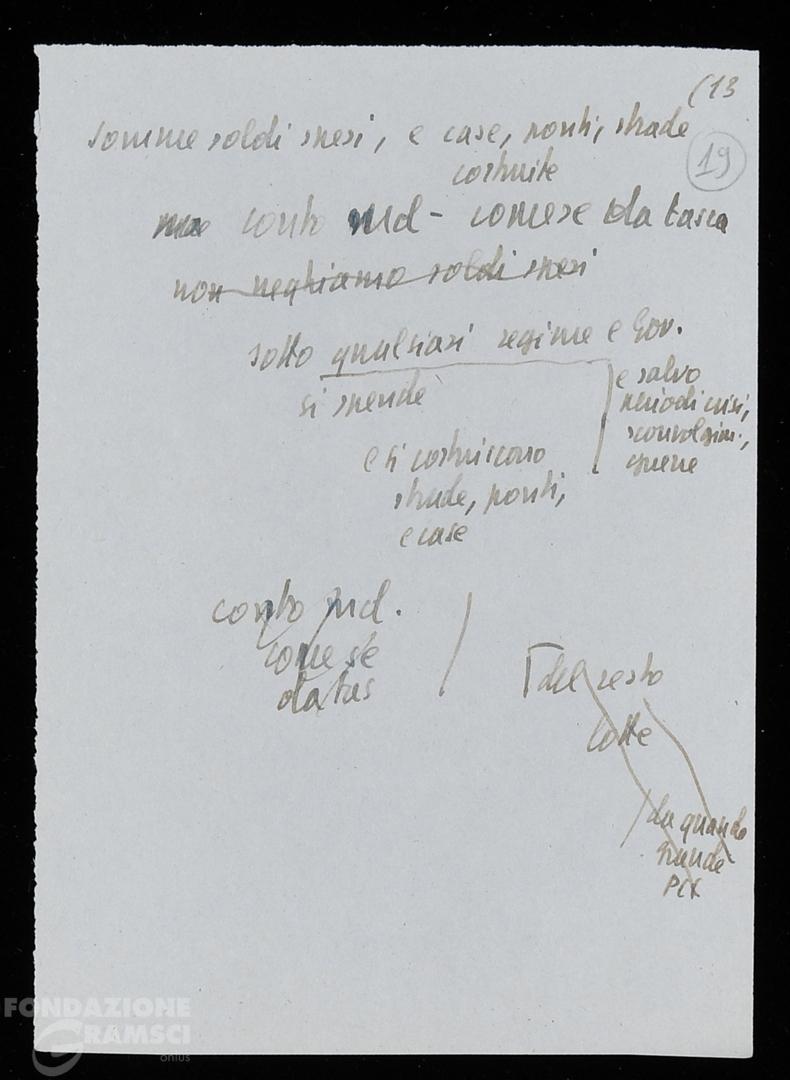 (13
19
somme soldi spesi, e case, ponti, strade
costruite
ma conto md - come se da tasca
non neghiamo soldi spesi
sotto qualsiasi regime e Gov.
si spende
e salvo
periodi crisi,
sconvolgim.,
guerre
e si costruiscono
strade, ponti,
e case
conto md.
come se
da tas
del resto
lotte
da quando
grande
PCI
FONDAZIONE
GRAMSCI
onlus